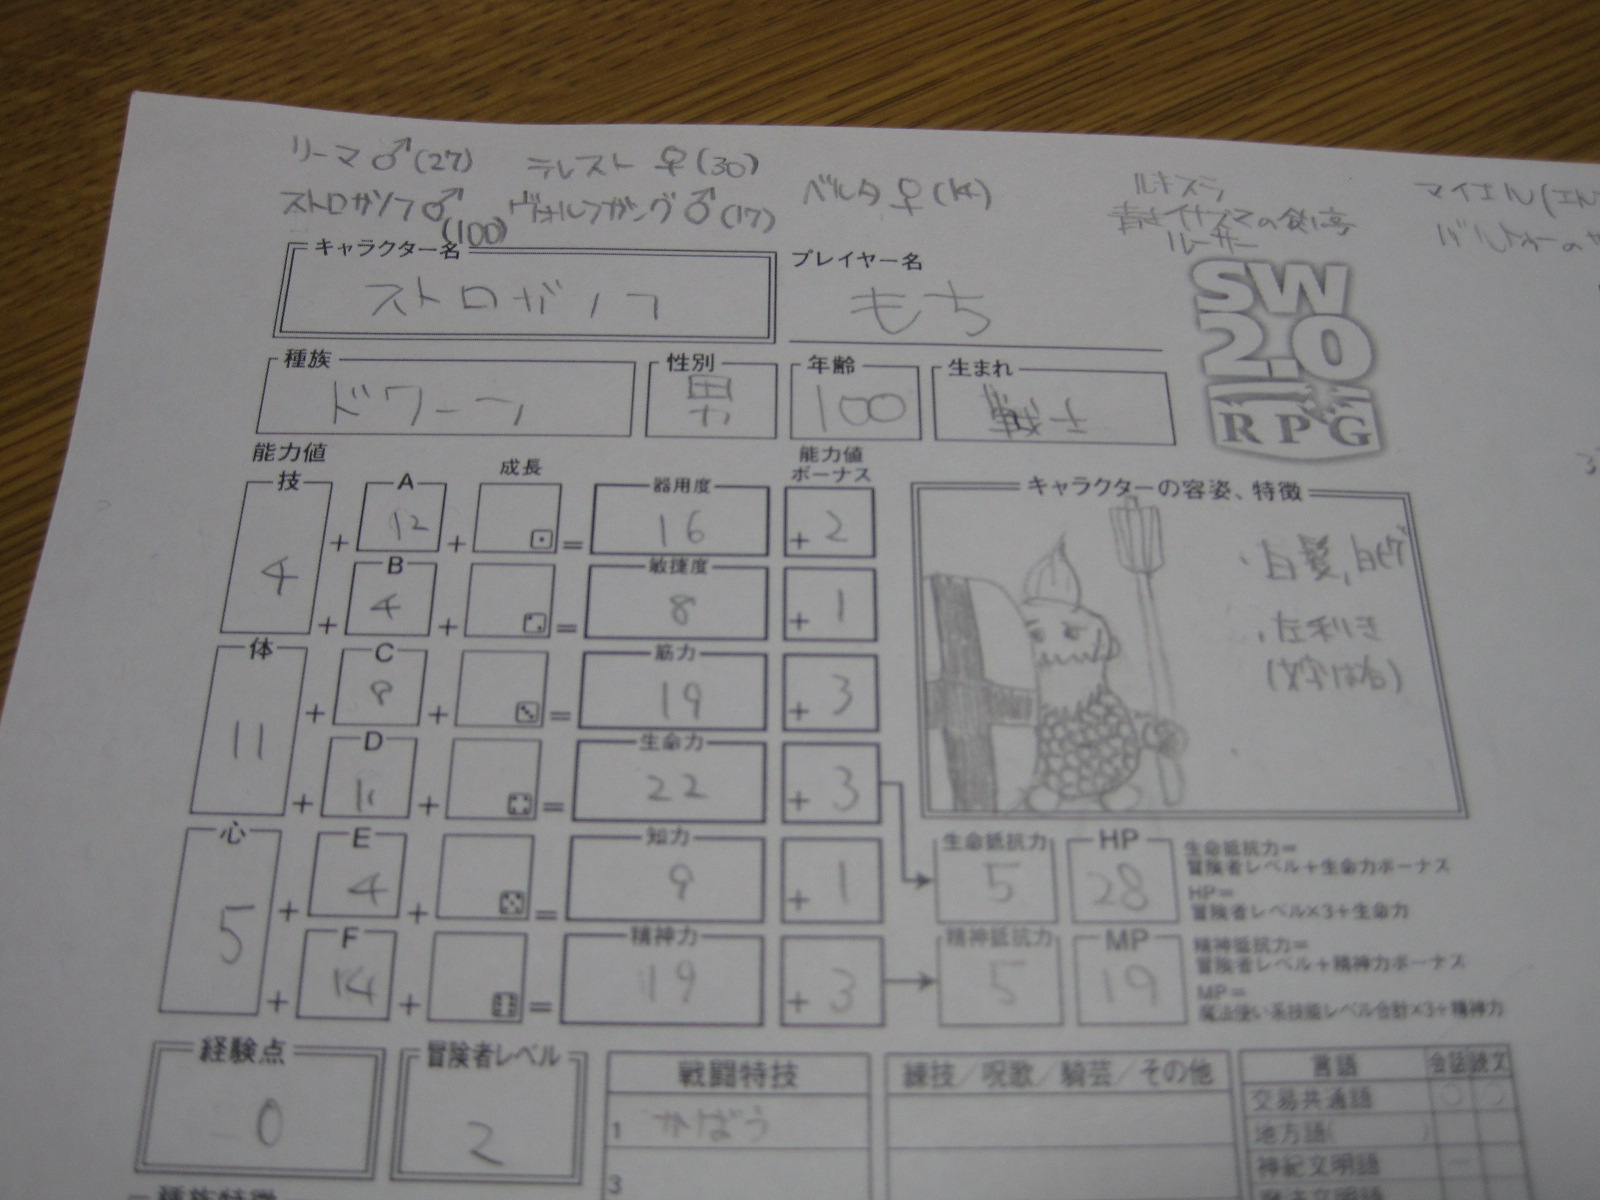 リーマ♂(27) テレスト ♀(30)
ストロガノフ♂(100) ヴォルフガング♂(17) ベルタ♀(14)
ルキスラ
青きイナズマの
ルーサー
マイエル(エル
キャラクター名
ストロガノフ
プレイヤー名
もち
SW
2.0
RPG
種族
ドワーフ
性別
男
年齢
100
生まれ
戦士
能力値
成長
能力値
ボーナス
技
4
+ A 12 + = 器用度 16 +2
+ B 4 + = 敏捷度 8 +1
体
11
+ C 8 + = 筋力 19 +3
+ D 11 + = 生命力 22 +3
心
5
+ E 4 + = 知力 9 +1
+ F 14 + = 精神力 19 +3
キャラクターの容姿、特徴
・白髪,白ヒゲ
・左利き
(文字は右)
生命抵抗力
5
HP
28
生命抵抗力=
冒険者レベル+生命力ボーナス
HP=
冒険者レベル×3+生命力
精神抵抗力
5
MP
19
精神抵抗力=
冒険者レベル+精神力ボーナス
MP=
魔法使い系技能レベル合計×3+精神力
経験点
0
冒険者レベル
2
戦闘特技
1 かばう
3
練技/呪歌/騎芸/その他
言語 会話 読文
交易共通語 ○ ○
地方語( )
神紀文明語 -
魔法文明語
種族特徴